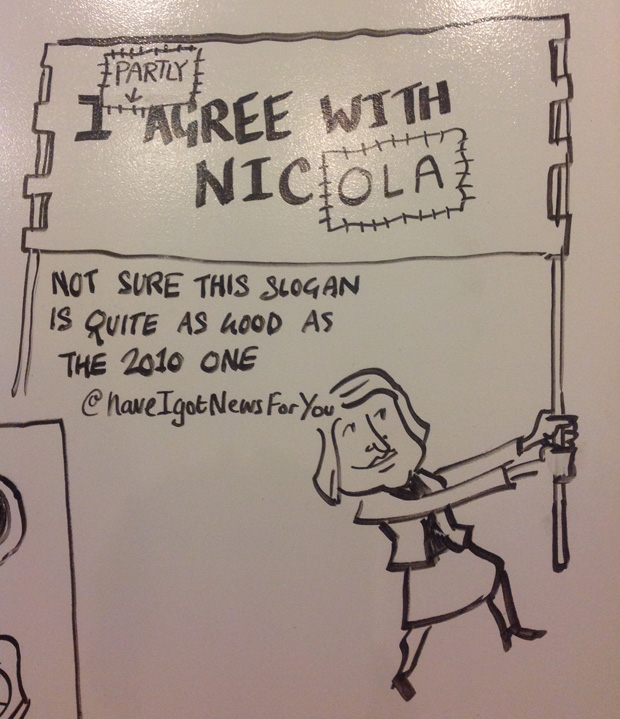 PARTLY
I AGREE WITH
NICOLA
NOT SURE THIS SLOGAN
IS QUITE AS GOOD AS
THE 2010 ONE
@haveIgotNewsForYou